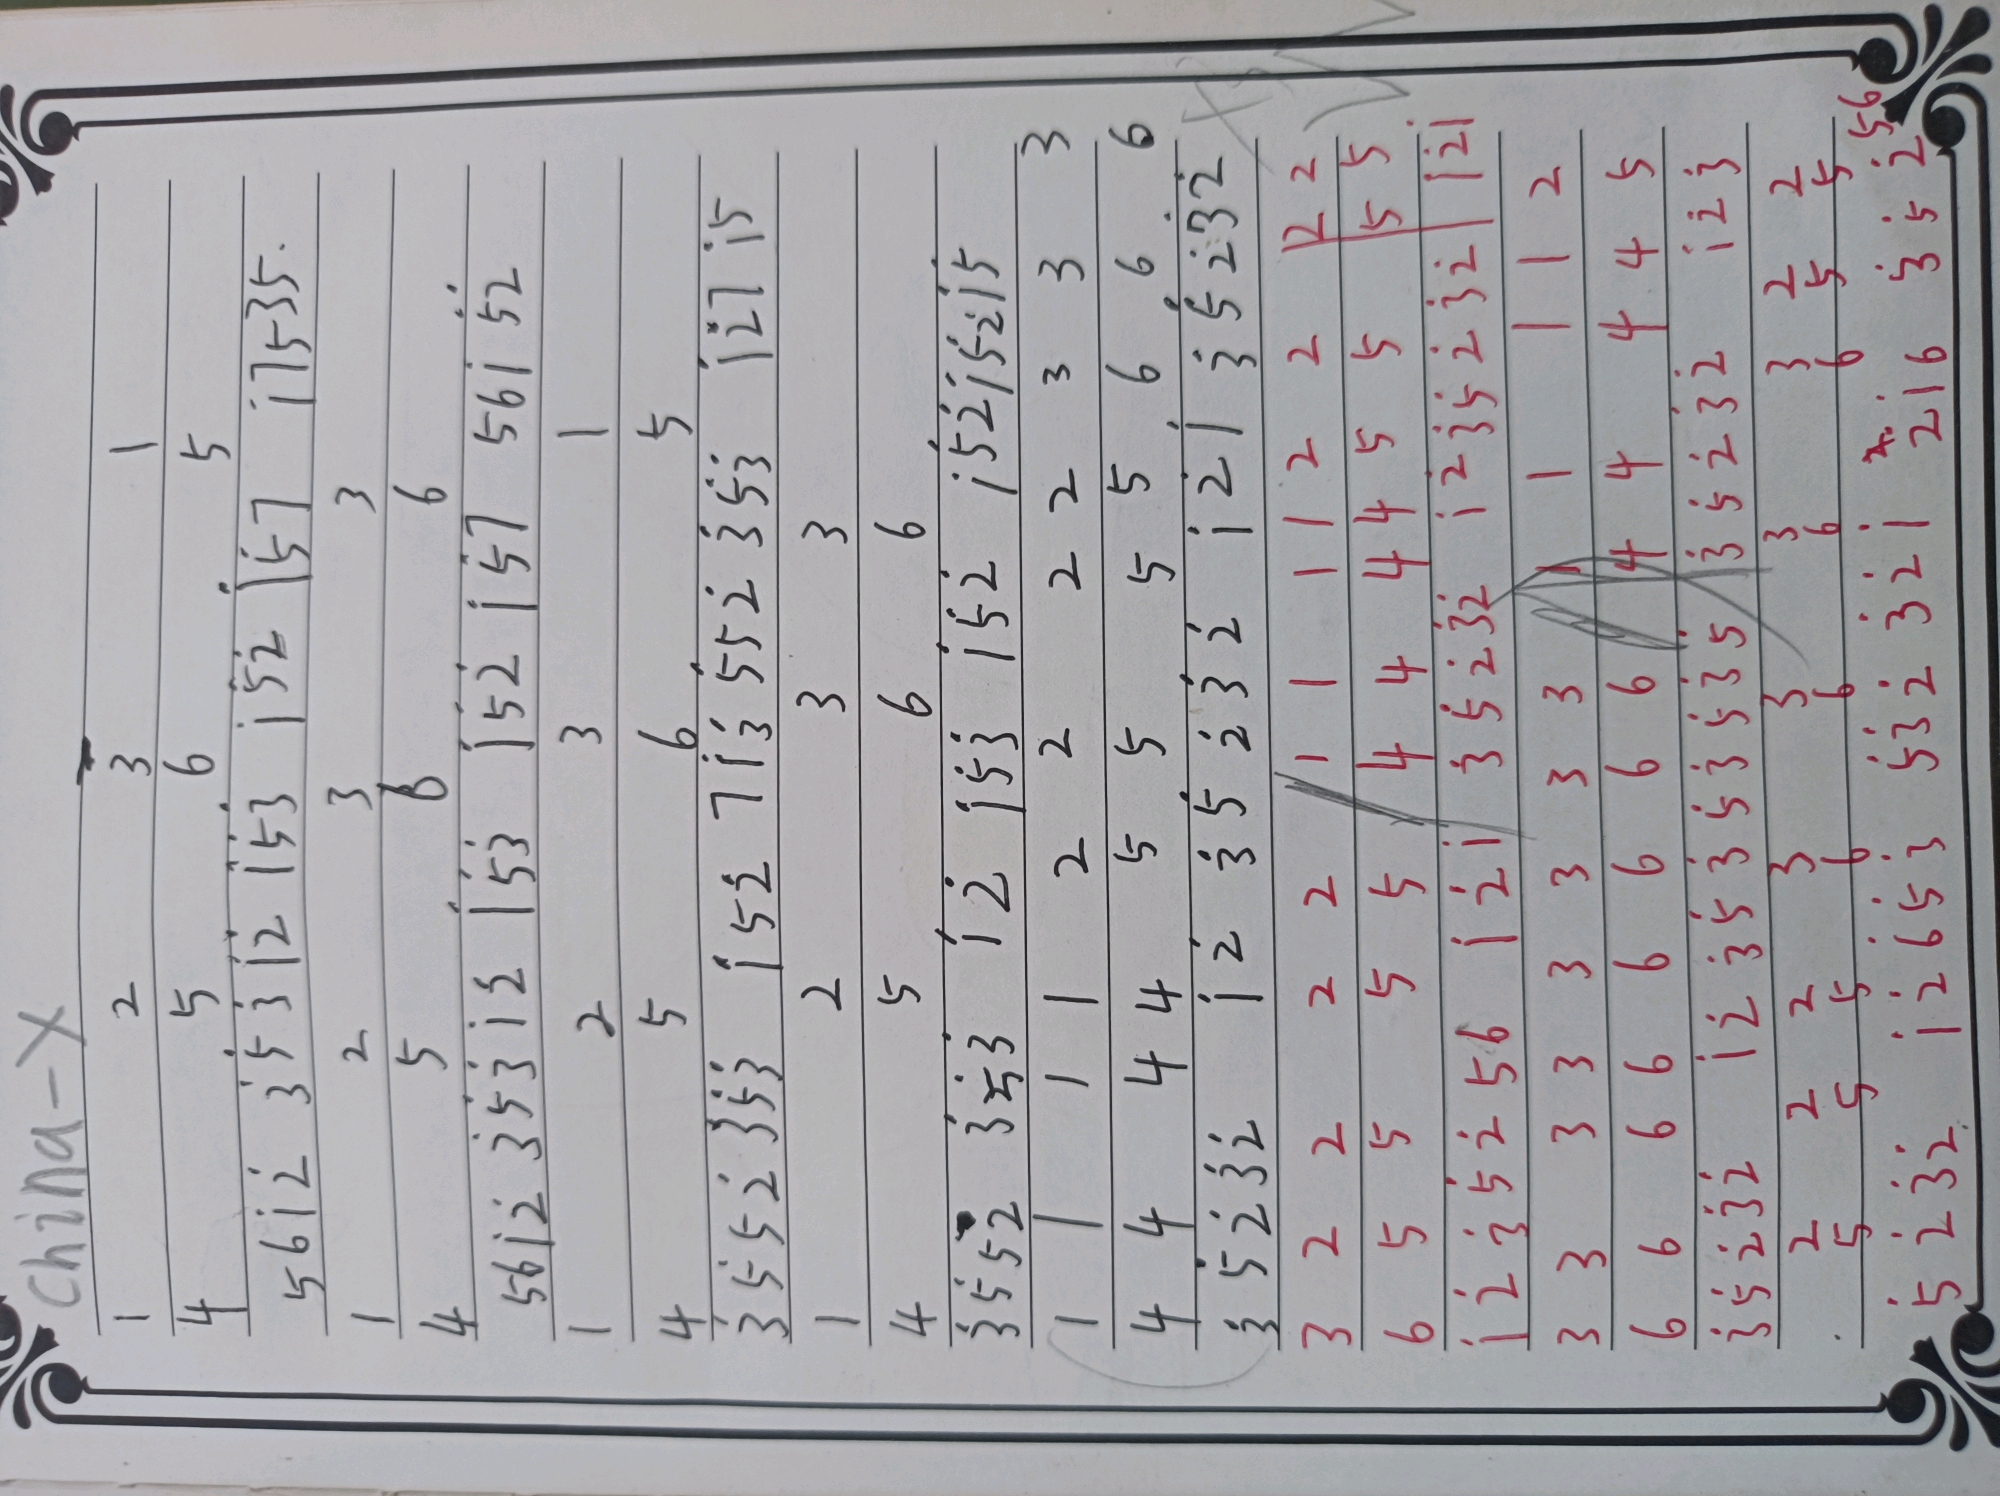 China-X
1 2 3 1
4 5 6 5
561̇2̇ 3̇5̇3̇1̇2̇ 1̇5̇3̇ 1̇52̇ 1̇57 1̇7535.
1 2 3 3
4 5 6 6
561̇2̇ 3̇5̇3̇1̇2̇ 1̇53̇ 1̇52̇ 1̇57 561̇52̇
1 2 3 1
4 5 6 5
3̇5̇52̇ 3̇53̇ 1̇52̇ 71̇3̇ 552̇ 3̇53̇ 1̇2̇7 1̇5
1 2 3 3
4 5 6 6
3̇5̇52̇ 3̇5̇3 1̇2̇ 1̇53̇ 1̇52̇ 1̇52̇1̇52̇1̇5
1 1 1 1 2 2 2 2 3 3 3
4 4 4 4 5 5 5 5 6 6 6
3̇ 5̇2̇3̇2̇ 1̇2̇ 3̇5̇2̇3̇2̇ 1̇2̇1̇ 3̇5̇2̇3̇2̇
3 2 2 2 2 1 1 1 2 2 2 2
6 5 5 5 5 4 4 4 4 5 5 5 5
1̇2̇3̇5̇2̇56 1̇2̇1̇ 3̇5̇2̇3̇2̇ 1̇2̇3̇5̇2̇3̇2̇ 1̇2̇1̇
3 3 3 3 3 3 3 3 1 1 1 1 2
6 6 6 6 6 6 6 6 4 4 4 4 5
3̇5̇2̇3̇2̇ 1̇2̇3̇5̇3̇5̇3̇5̇3̇5̇ 3̇5̇2̇3̇2̇ 1̇2̇3̇
2 2 2 3 3 3 3 2 2
5 5 5 6 6 6 6 5 5
5̇2̇3̇2̇ 1̇2̇653̇ 5̇3̇2̇ 3̇2̇1̇ 2̇1̇6 3̇5̇2̇ 56